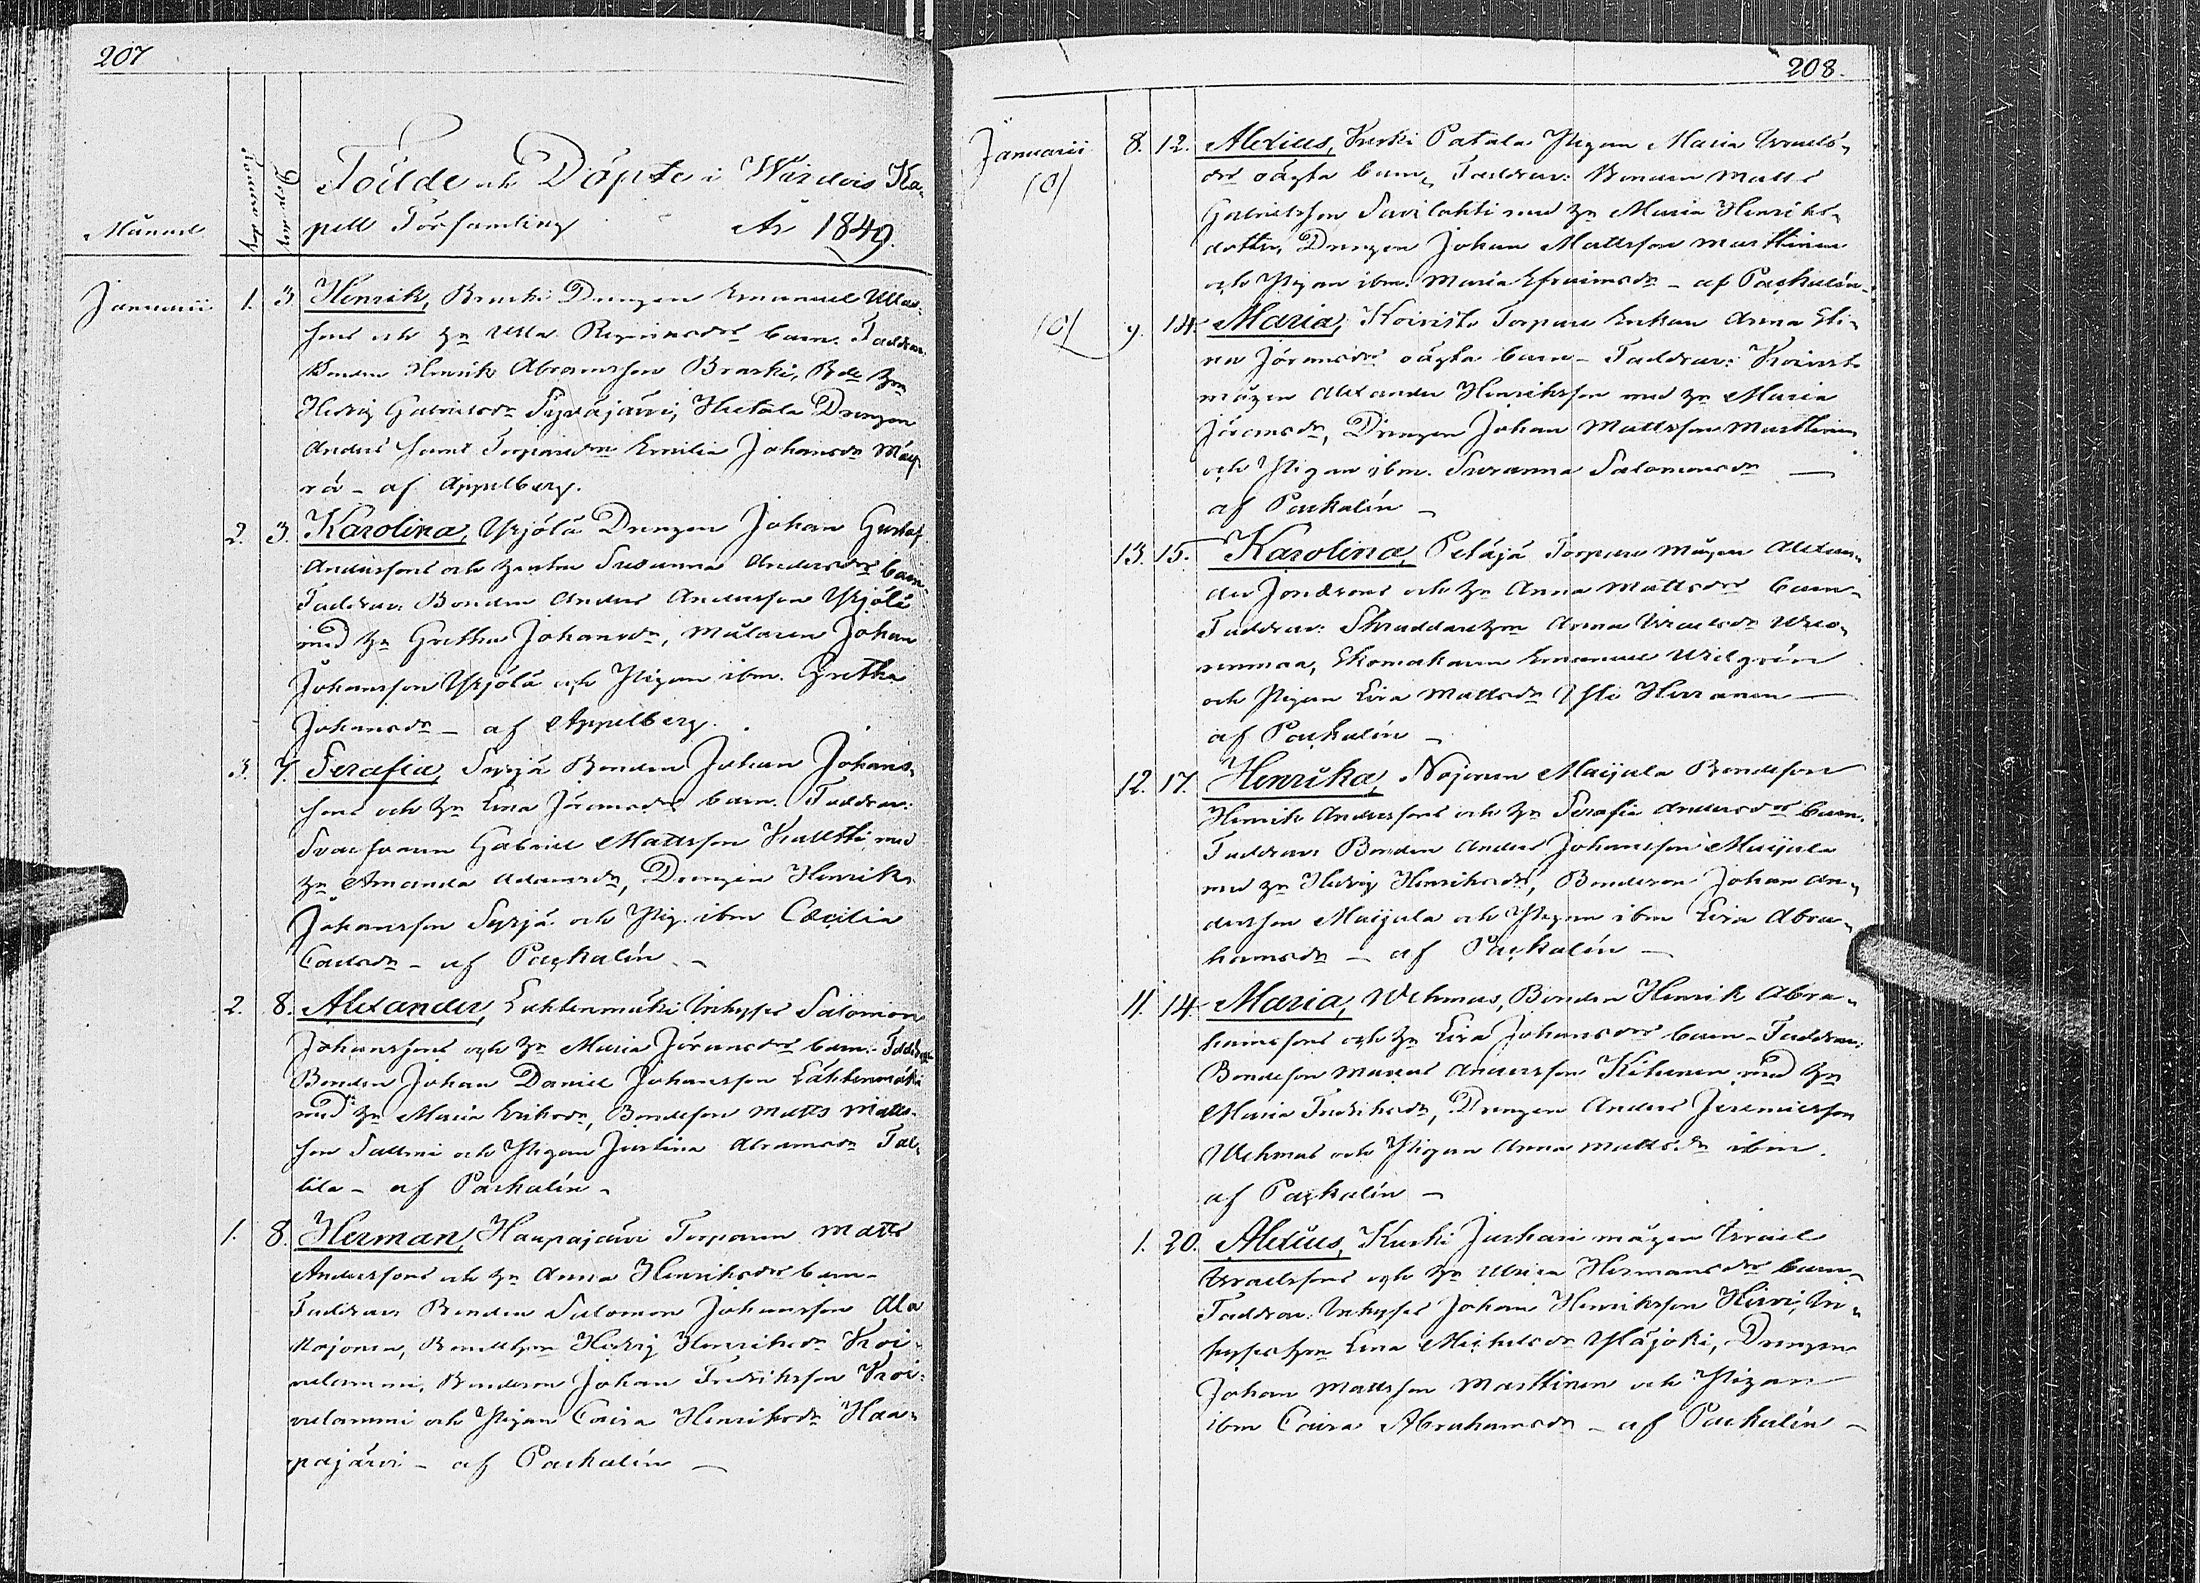 207
Månad
Födelse dag
Döpt. dag
Födde och Döpte i Wirdois Ka-
pell Församling År 1849.
Januarii 1. 3. Henrik, Braski Drengen Emanuel
sons och hu Ulla barn. Faddrar:
Bonden Henrik Abramsson Braski, Bde hn
Hedvig Gabrielsdr Sysäjärvi, Hietala Drengen
Anders samt Torparedn Emilia Johansdr Mäy-
rä – af Appelberg.
2. 3. Karolina, Yrjölä Drengen Johan Gustaf
Anderssons och hustru Susanna Andersdrs barn.
Faddrar: Bonden Anders Andersson Yrjölä
med hu Gretha Johansdr, målaren Johan
Johansson Yrjölä och Pigan ibm. Gretha
Johansdr – af Appelberg.
3. 7. Serafia, Syrjä Bonden Johan Johans-
sons och hu Lena Jöransdrs barn. Faddrar:
Svarfvaren Gabriel Mattsson Kalltti med
hu Amanda Adamsdr, Drengen Henrik
Johansson Syrjä och Pig. ibm Cæcilia
Carlsdr – af Paqvalin –
2. 8. Alexander, Lahtenmäki Inhyses Salomon
Johanssons och hu Maria Jöransdrs barn. Faddrar
Bonden Johan Daniel Johansson Lahtenmäki
med hu Maria Eriksdr, Bondeson Matts Matts-
son Sallmi och Pigan Justina Abramsdr Tal-
lila – af Paskalin –
1. 8. Herman, Haapajärvi Torparen Matts
Anderssons och hu Anna Henriksdrs barn –
Faddrar: Bonden Salomon Johansson Ala
Kojonen, Bondehun Hedvig Henriksdr Koi-
velammi, Bondeson Johan Fredriksson Koi-
velammi och Pigan Caisa Henriksdr Haa-
pajärvi – af Paskalin –
208.
Januarii 8. 12. Alexius, Kurki Patala Pigan Maria Israels-
(o) drs oägta barn, Faddrar: Bonden Matts
Gabrielsson Savilahti med hu Maria Henriks-
dotter, Drengen Johan Mattsson Marttinen
och Pigan ibm. Maria Efraimsdr – af Paskalin –
(o) 9. 14. Maria, Koivisto Torpare Enkan Anna Eli-
na Jöransdrs oägta barn – Faddrar: Koivisto
mågen Alexander Henriksson med hu Maria
Jöransdr, Drengen Johan Mattsson Marttinen
och Pigan ibm. Susanna Salomonsdr –
af Paskalin –
13. 15. Karolina, Peläjä Torpare mågen Alexan-
der Jonæsons och hu Anna Mattsdrs barn –
Faddrar: Skraddarehun Anna Israelsdr
, Skomakaren Emanuel Widgrén
och Pigan Eva Mattsdr Herranen –
af Paskalin –
12. 17. Henrika, Nojonen Maijala Bondeson
Henrik Anderssons och hu Serafia Andersdrs barn.
Faddrar: Bonden Anders Johansson Maijala
med hu Hedvig Henriksdr, Bondeson Johan An-
dersson Maijala och Pigan ibm Eva Abra-
hamsdr – af Paskalin –
11. 14. Maria, Wehmas, Bonden Henrik Abra-
hamssons och hu Eva Johansdrs barn – Faddrar:
Bondeson Marcus Andersson Kihinen med hu
Maria Fredriksdr, Drengen Anders Jeremiesson
Wehmas och Pigan Anna Mattsdr ibm.
af Paskalin –
1. 20. Alexius, Kurki Juskari mågen Israel
Israelssons och hu Ulrica Hermansdrs barn –
Faddrar: Inhyses Johan Henriksson Hirvi, In-
hyses hun Lena Michelsdr Yläjoki, Drengen
Johan Mattsson Marttinen och Pigan
ibm Caisa Abrahamsdr – af Paskalin –